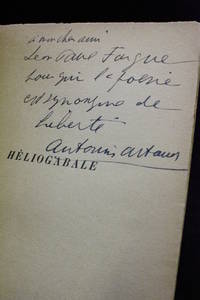 à mon cher ami
Léon Paul Fargue
pour qui la poésie
est synonyme de
liberté
HÉLIOGABALE
Antonin Artaud